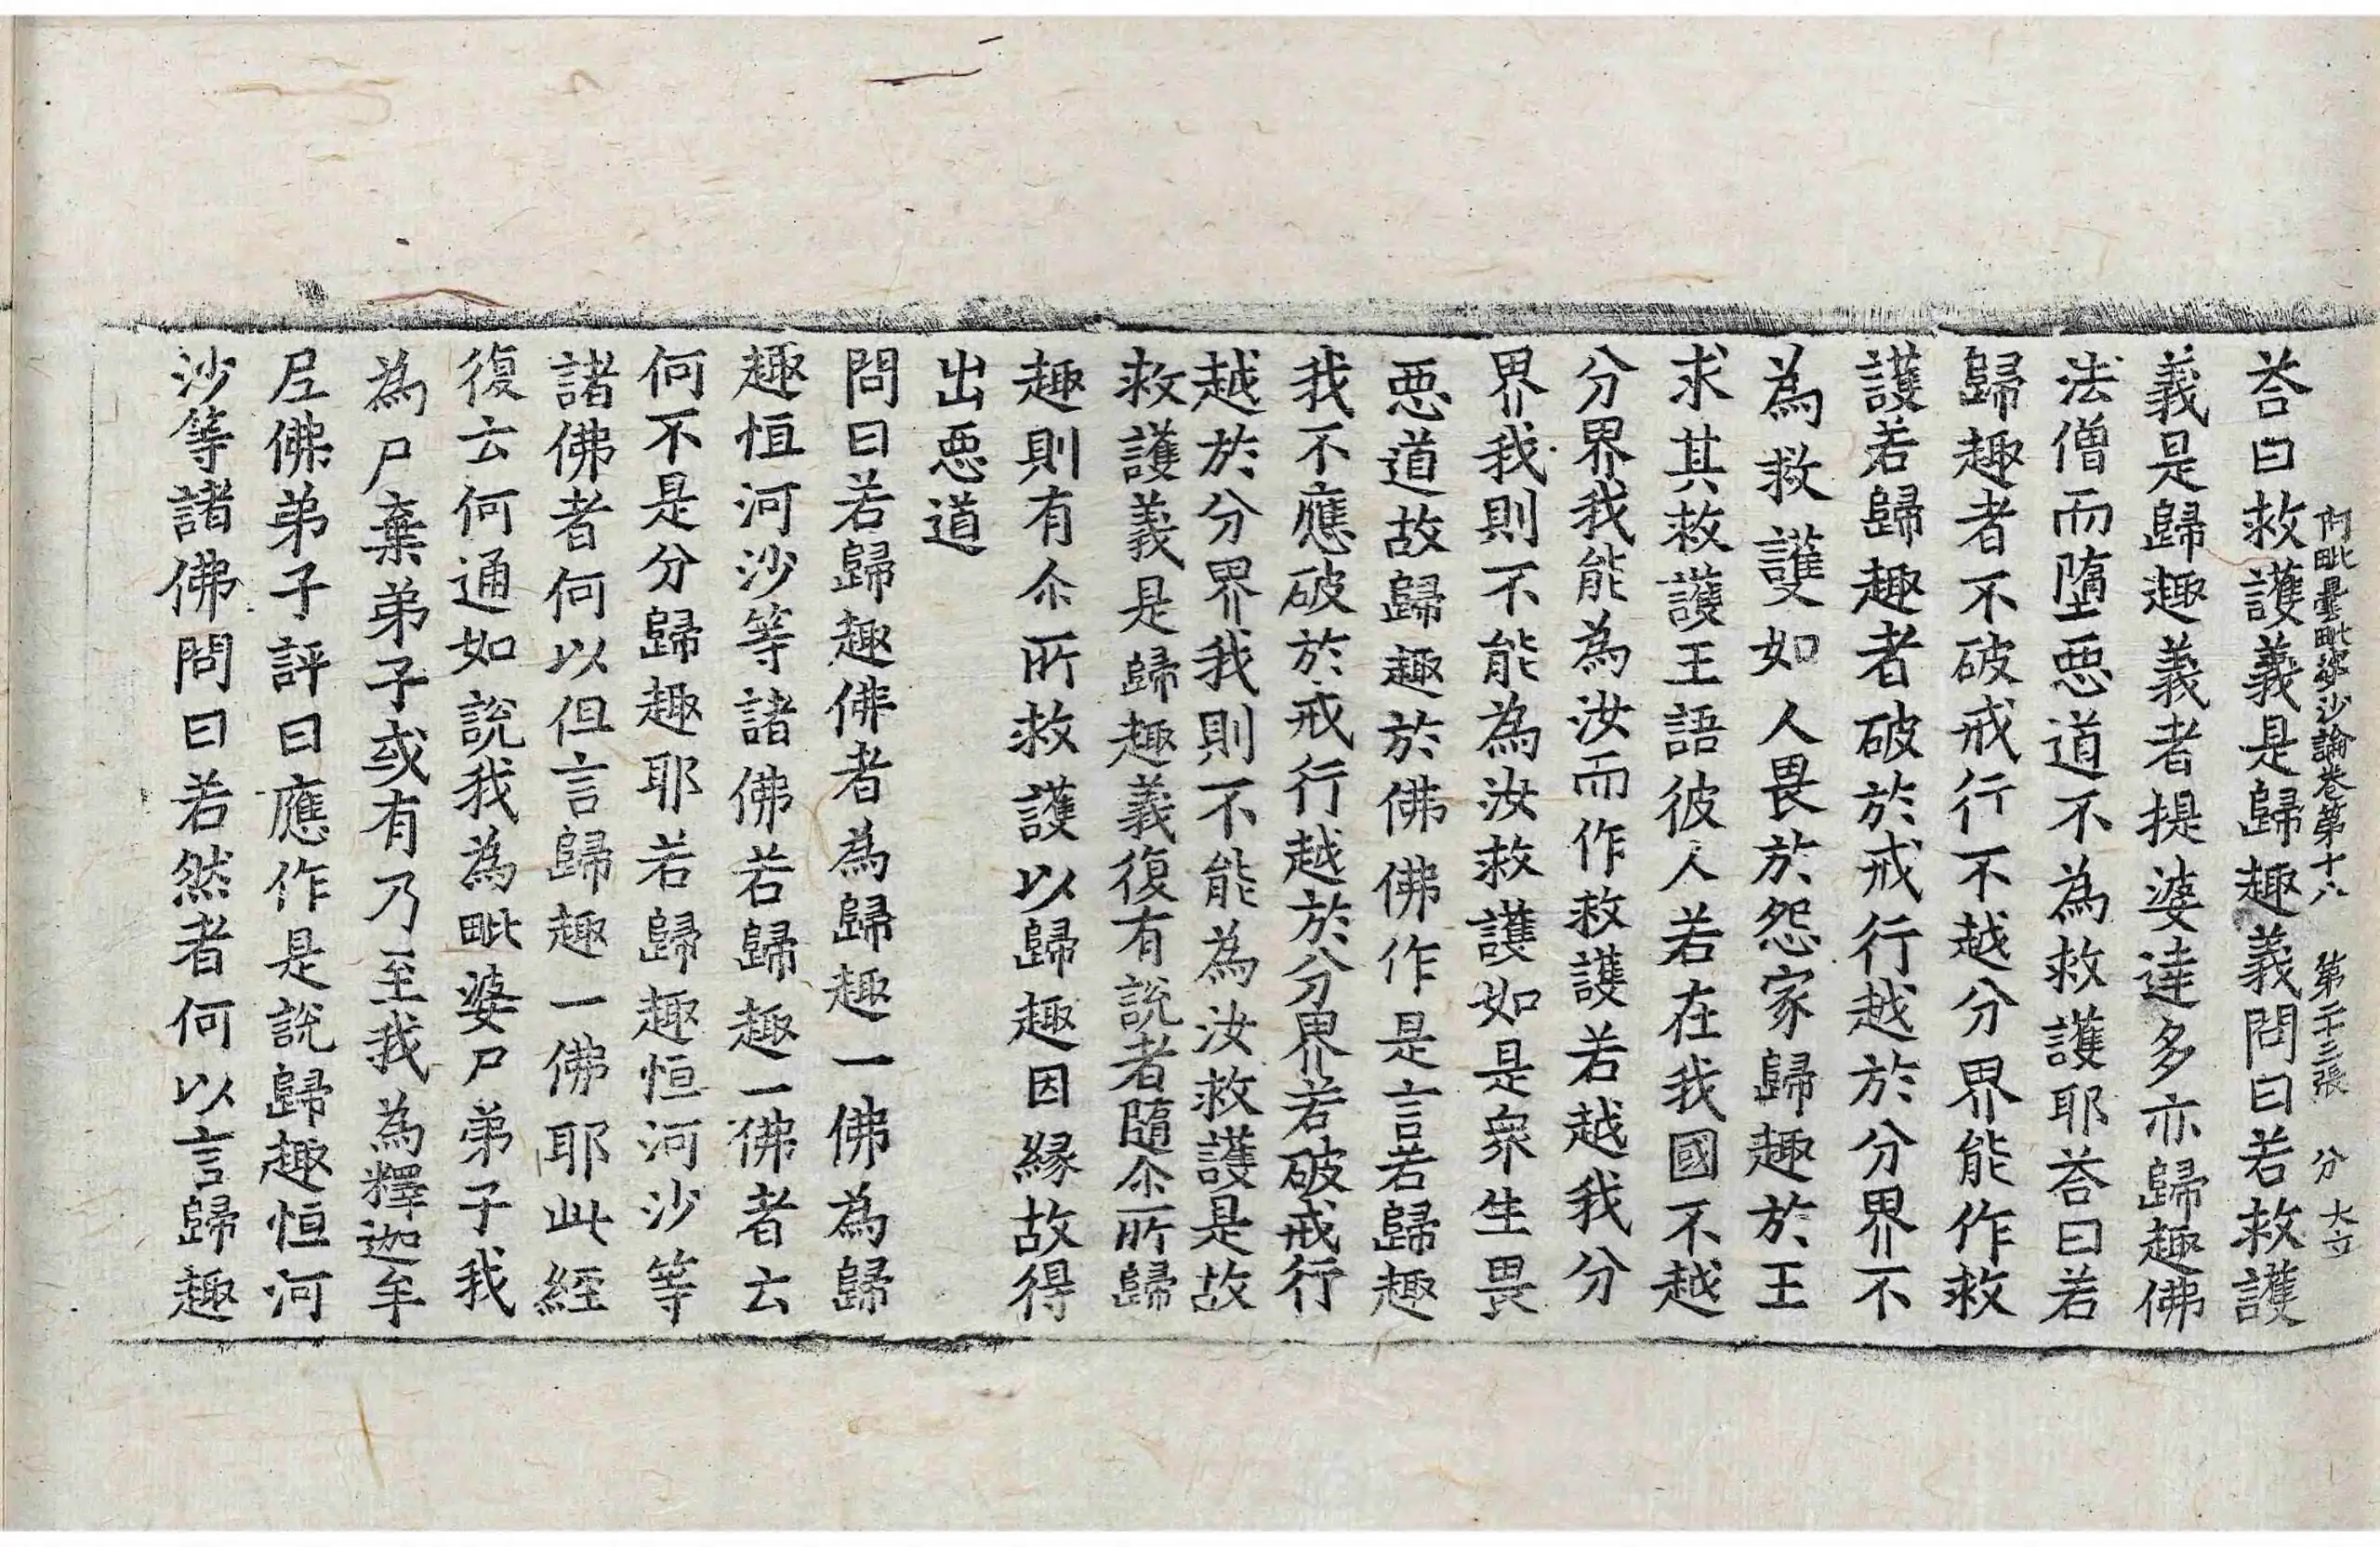 阿毗曇毗婆沙論卷第十八　第二十三張　分　大立
荅曰救護義是歸趣義問曰若救護
義是歸趣義者提婆達多亦歸趣佛
法僧而墮惡道不為救護耶荅曰若
歸趣者不破戒行不越分界能作救
護若歸趣者破於戒行越於分界不
為救護如人畏於怨家歸趣於王
求其救護王語彼人若在我國不越
分界我能為汝而作救護若越我分
界我則不能為汝救護如是衆生畏
惡道故歸趣於佛佛作是言若歸趣
我不應破於戒行越於分界若破戒行
越於分界我則不能為汝救護是故
救護義是歸趣義復有說者隨尒所歸
趣則有尒所救護以歸趣因緣故得
出惡道
問曰若歸趣佛者為歸趣一佛為歸
趣恒河沙等諸佛若歸趣一佛者云
何不是分歸趣耶若歸趣恒河沙等
諸佛者何以但言歸趣一佛耶此經
復云何通如說我為毗婆尸弟子我
為尸棄弟子或有乃至我為釋迦牟
尼佛弟子評曰應作是說歸趣恒河
沙等諸佛問曰若然者何以言歸趣